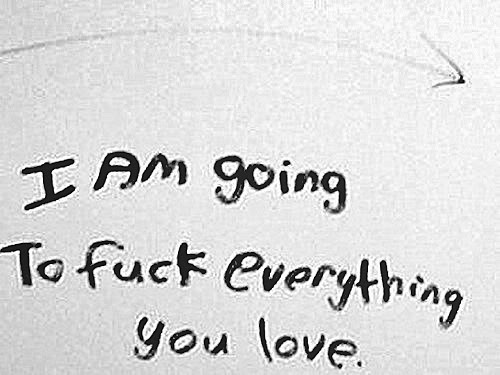 I Am going
To fuck everything
you love.